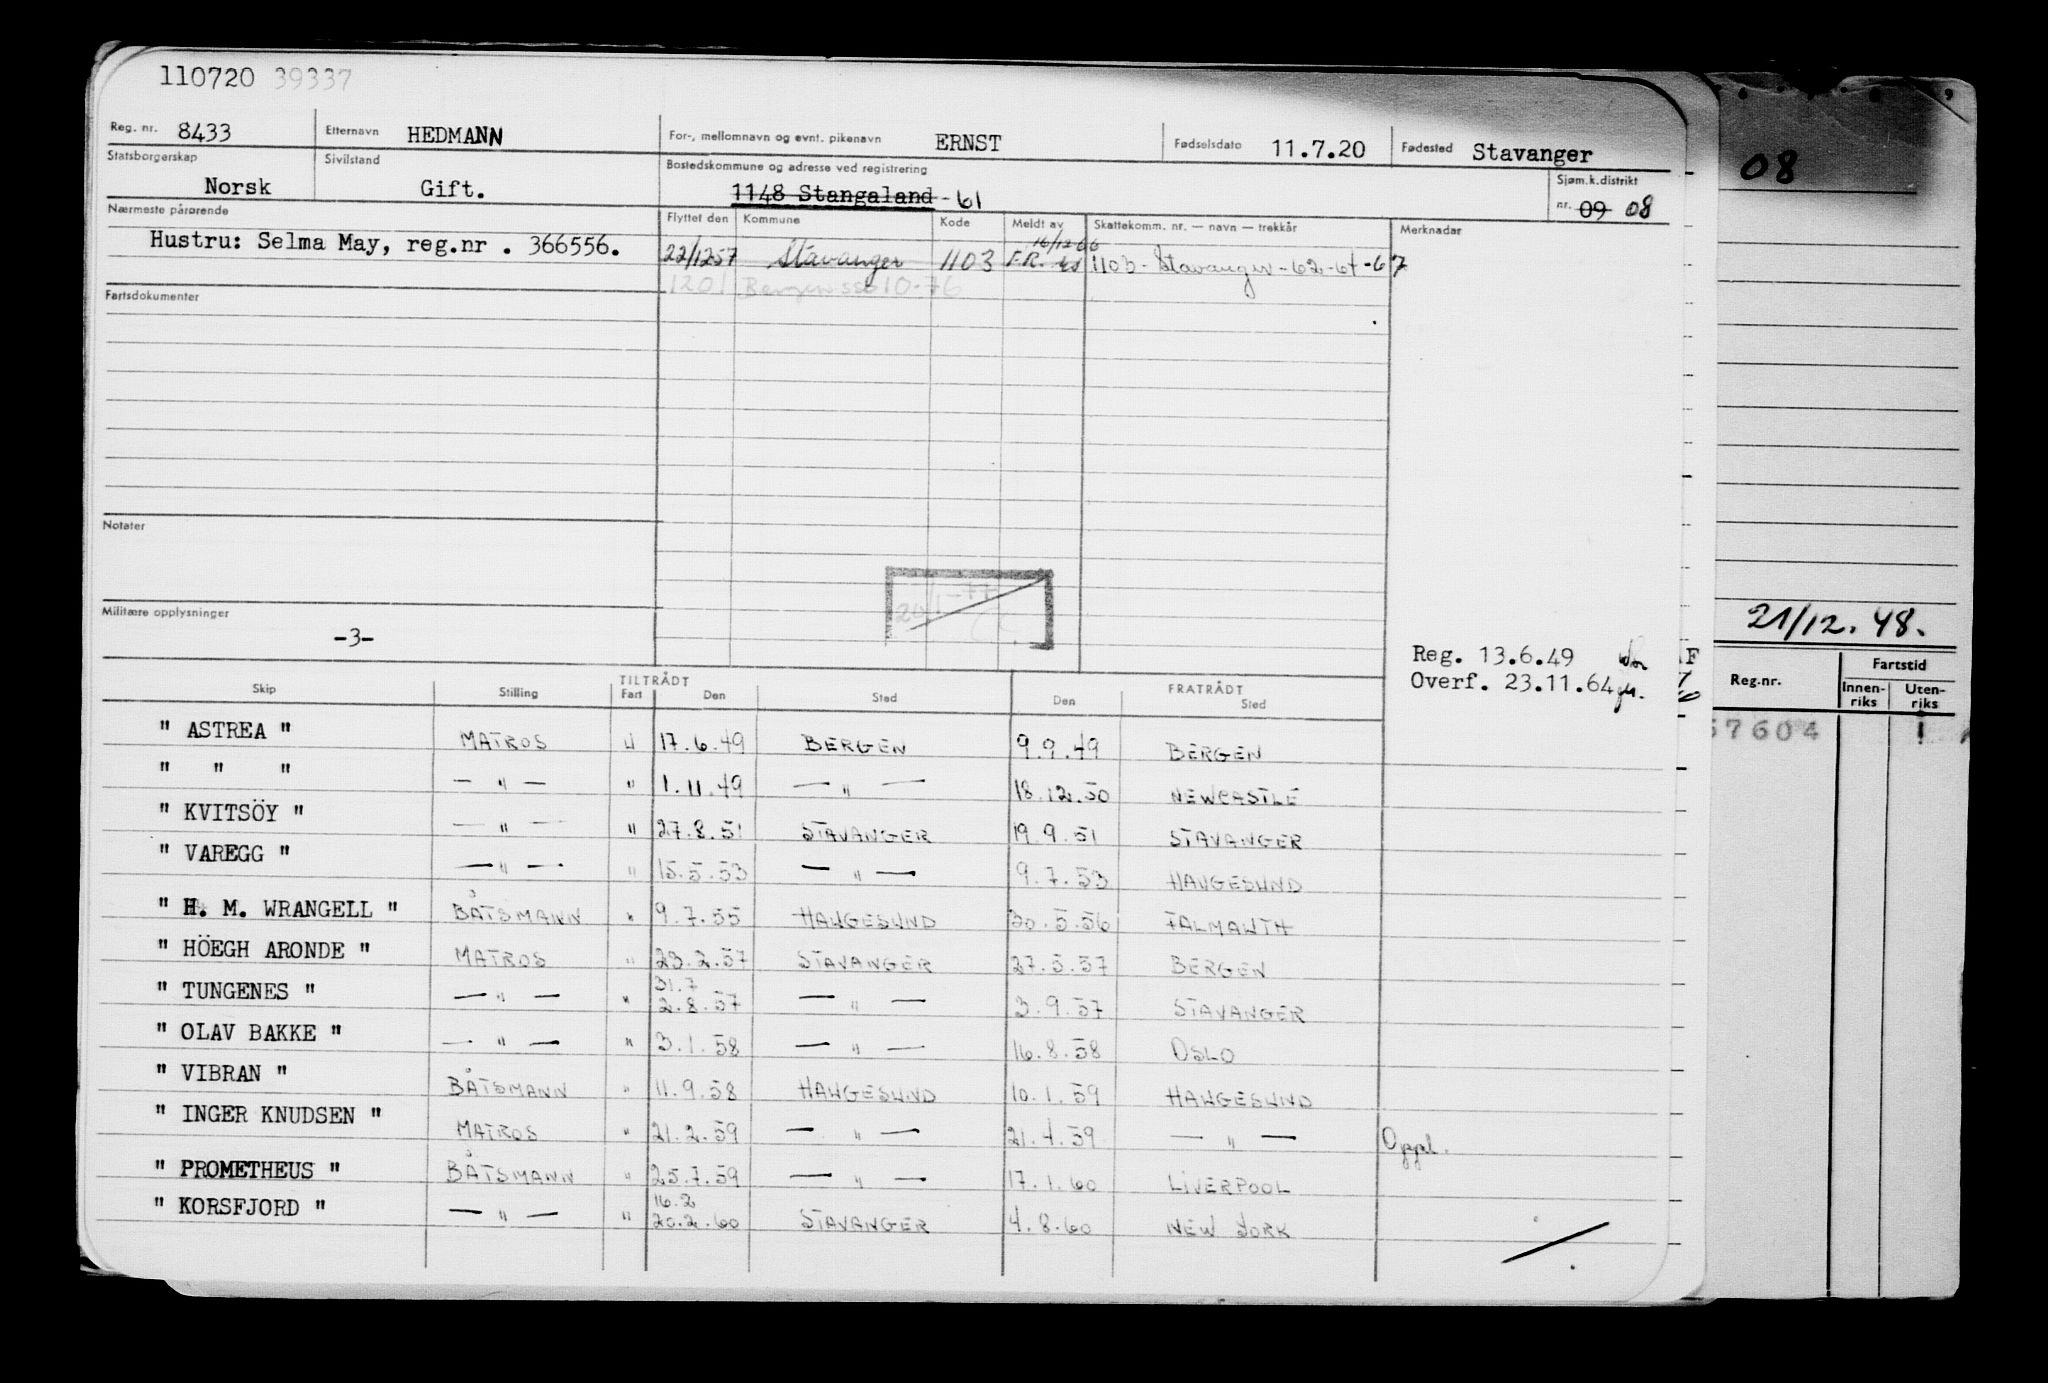 110720 39337
Reg. nr. 8433 Etternavn HEDMANN For-, mellomnavn og evnt. pikenavn ERNST Fødselsdato 11.7.20 Fødested Stavanger
Statsborgerskap Norsk Sivilstand Gift. Bostedskommune og adresse ved registrering 1148 Stangaland - 61 Sjøm.k.distrikt nr. 09 08
Nærmeste pårørende Flyttet den Kommune Kode Meldt av Skattekomm. nr. — navn — trekkår Merknader
Hustru: Selma May, reg.nr . 366556. 22/12 57 Stavanger 1103 F.R. 16/12-66 1103 - Stavanger - 62-64-67
1201 Bergen 10-76
Fartsdokumenter
Notater
20/1-77
Militære opplysninger
-3-
Reg. 13.6.49
Overf. 23.11.64
Skip Stilling TILTRÅDT Fart Den Sted FRATRÅDT Den Sted
" ASTREA " MATROS U 17.6.49 BERGEN 9.9.49 BERGEN
" " " — " — " 1.11.49 — " — 18.12.50 NEWCASTLE
" KVITSÖY " — " — " 27.8.51 STAVANGER 19.9.51 STAVANGER
" VAREGG " — " — " 15.5.53 — " — 9.7.53 HAUGESUND
" H. M. WRANGELL " BÅTSMANN " 9.7.55 HAUGESUND 30.5.56 FALMAUTH
" HÖEGH ARONDE " MATROS " 23.2.57 STAVANGER 27.5.57 BERGEN
" TUNGENES " — " — " 31.7 2.8.57 — " — 3.9.57 STAVANGER
" OLAV BAKKE " — " — " 3.1.58 — " — 16.8.58 OSLO
" VIBRAN " BÅTSMANN " 11.9.58 HAUGESUND 10.1.59 HAUGESUND
" INGER KNUDSEN " MATROS " 21.2.59 — " — 21.4.59 — " — Oppl.
" PROMETHEUS " BÅTSMANN " 25.7.59 — " — 17.1.60 LIVERPOOL
" KORSFJORD " — " — " 16.2 20.2.60 STAVANGER 4.8.60 NEW YORK
08
21/12.48.
Reg.nr. Fartstid
Innen-riks Uten-riks
57604 1